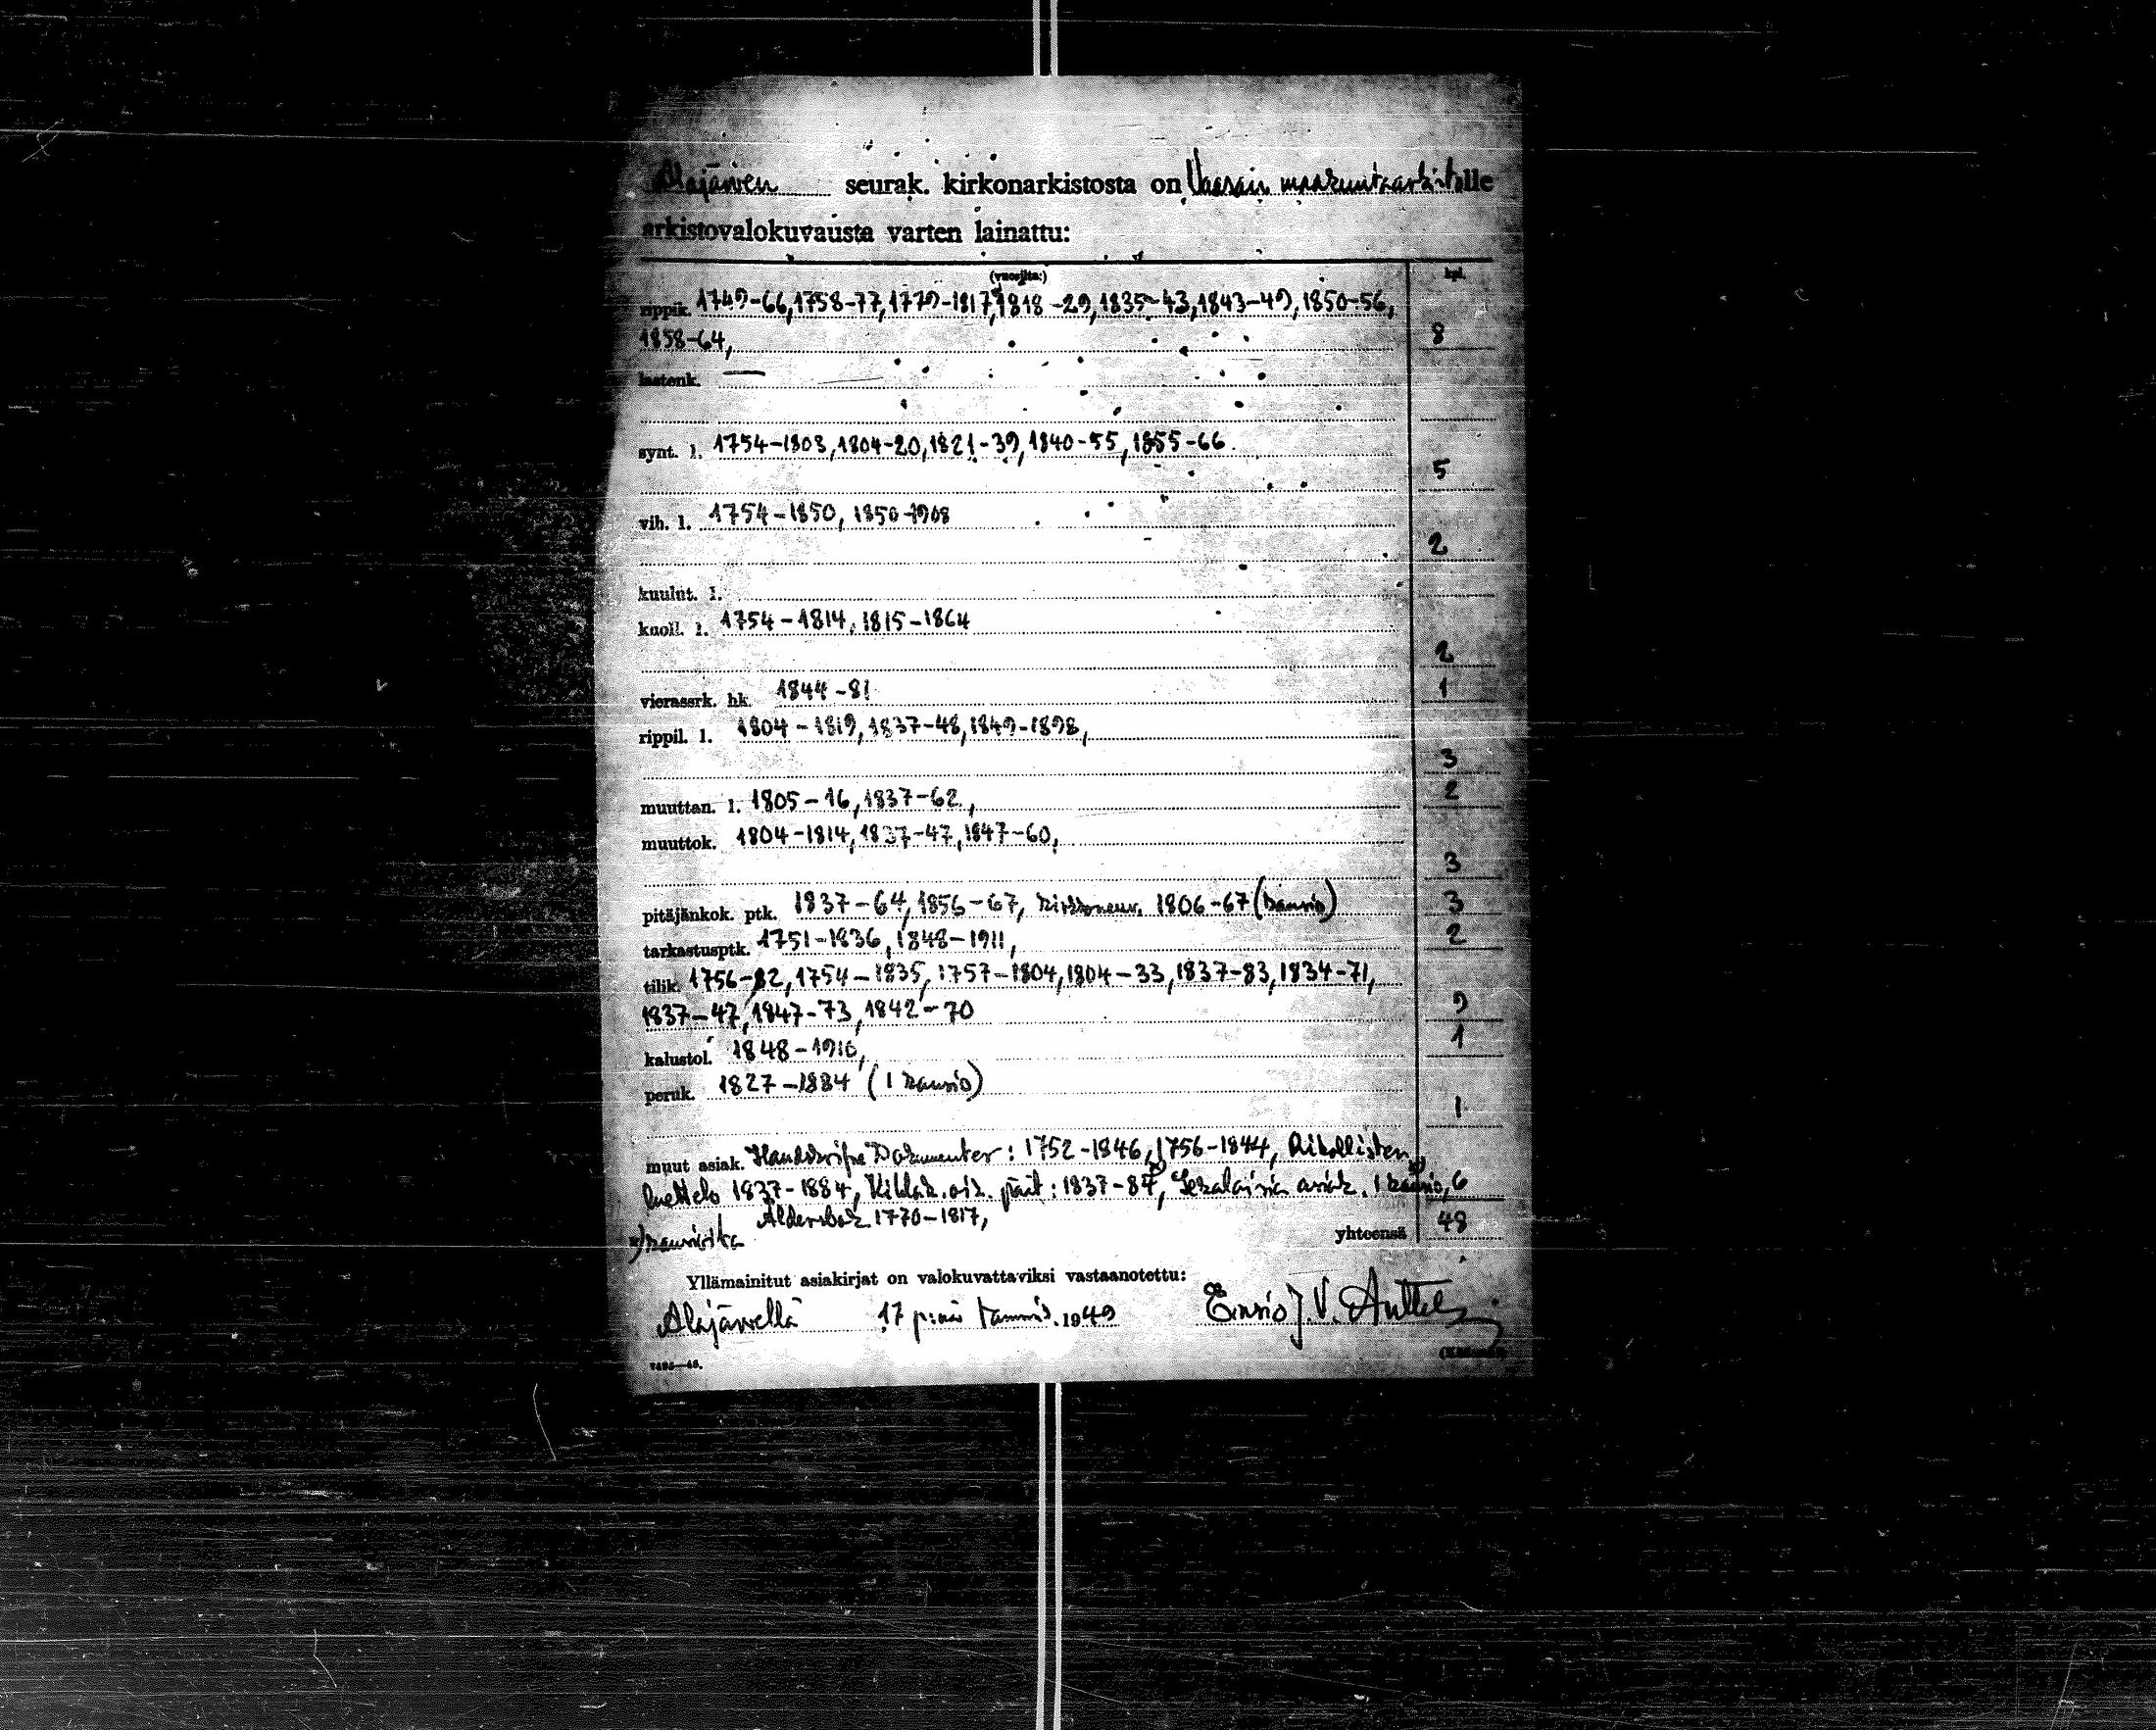 Alajärven seurak. kirkonarkistosta on Vaasan maakuntaarkistolle
arkistovalokuvausta varten lainattu:
(vuosilta:) kpl.
rippik. 1749-66, 1758-77, 1779-1817, 1818-29, 1835-43, 1843-49, 1850-56,
1858-64, 8
lastenk. —
synt. l. 1754-1803, 1804-20, 1821-39, 1840-55, 1855-66
5
vih. l. 1754-1850, 1850-1908
2
kuulut. l.
kuoll. l. 1754-1814, 1815-1864
2
vierassrk. hk. 1844-81 1
rippil. l. 1804-1819, 1837-48, 1849-1898,
3
muuttan. l. 1805-16, 1837-62, 2
muuttok. 1804-1814, 1837-47, 1847-60,
3
pitäjänkok. ptk. 1837-64, 1856-67, Kirkkoneuv. 1806-67 (kansio) 3
tarkastusptk. 1751-1836, 1848-1911, 2
tilik. 1756-82, 1754-1835, 1757-1804, 1804-33, 1837-83, 1834-71,
1837-47, 1847-73, 1842-70 9
kalustol. 1848-1910, 1
peruk. 1827-1884 (1 kansio)
1
muut asiak. Dokumenter: 1752-1846, 1756-1844, Rikollisten
luettelo 1837-1884, Kihlak. oik. pöit: 1837-87, Sekalaisia asiak. 1 kansio, 6
Aldersbok 1770-1817,
x) kansioita yhteensä 48
Yllämainitut asiakirjat on valokuvattaviksi vastaanotettu:
Alajärvellä 17 p:nä tammik. 1949 Ensio J. V. Anttel